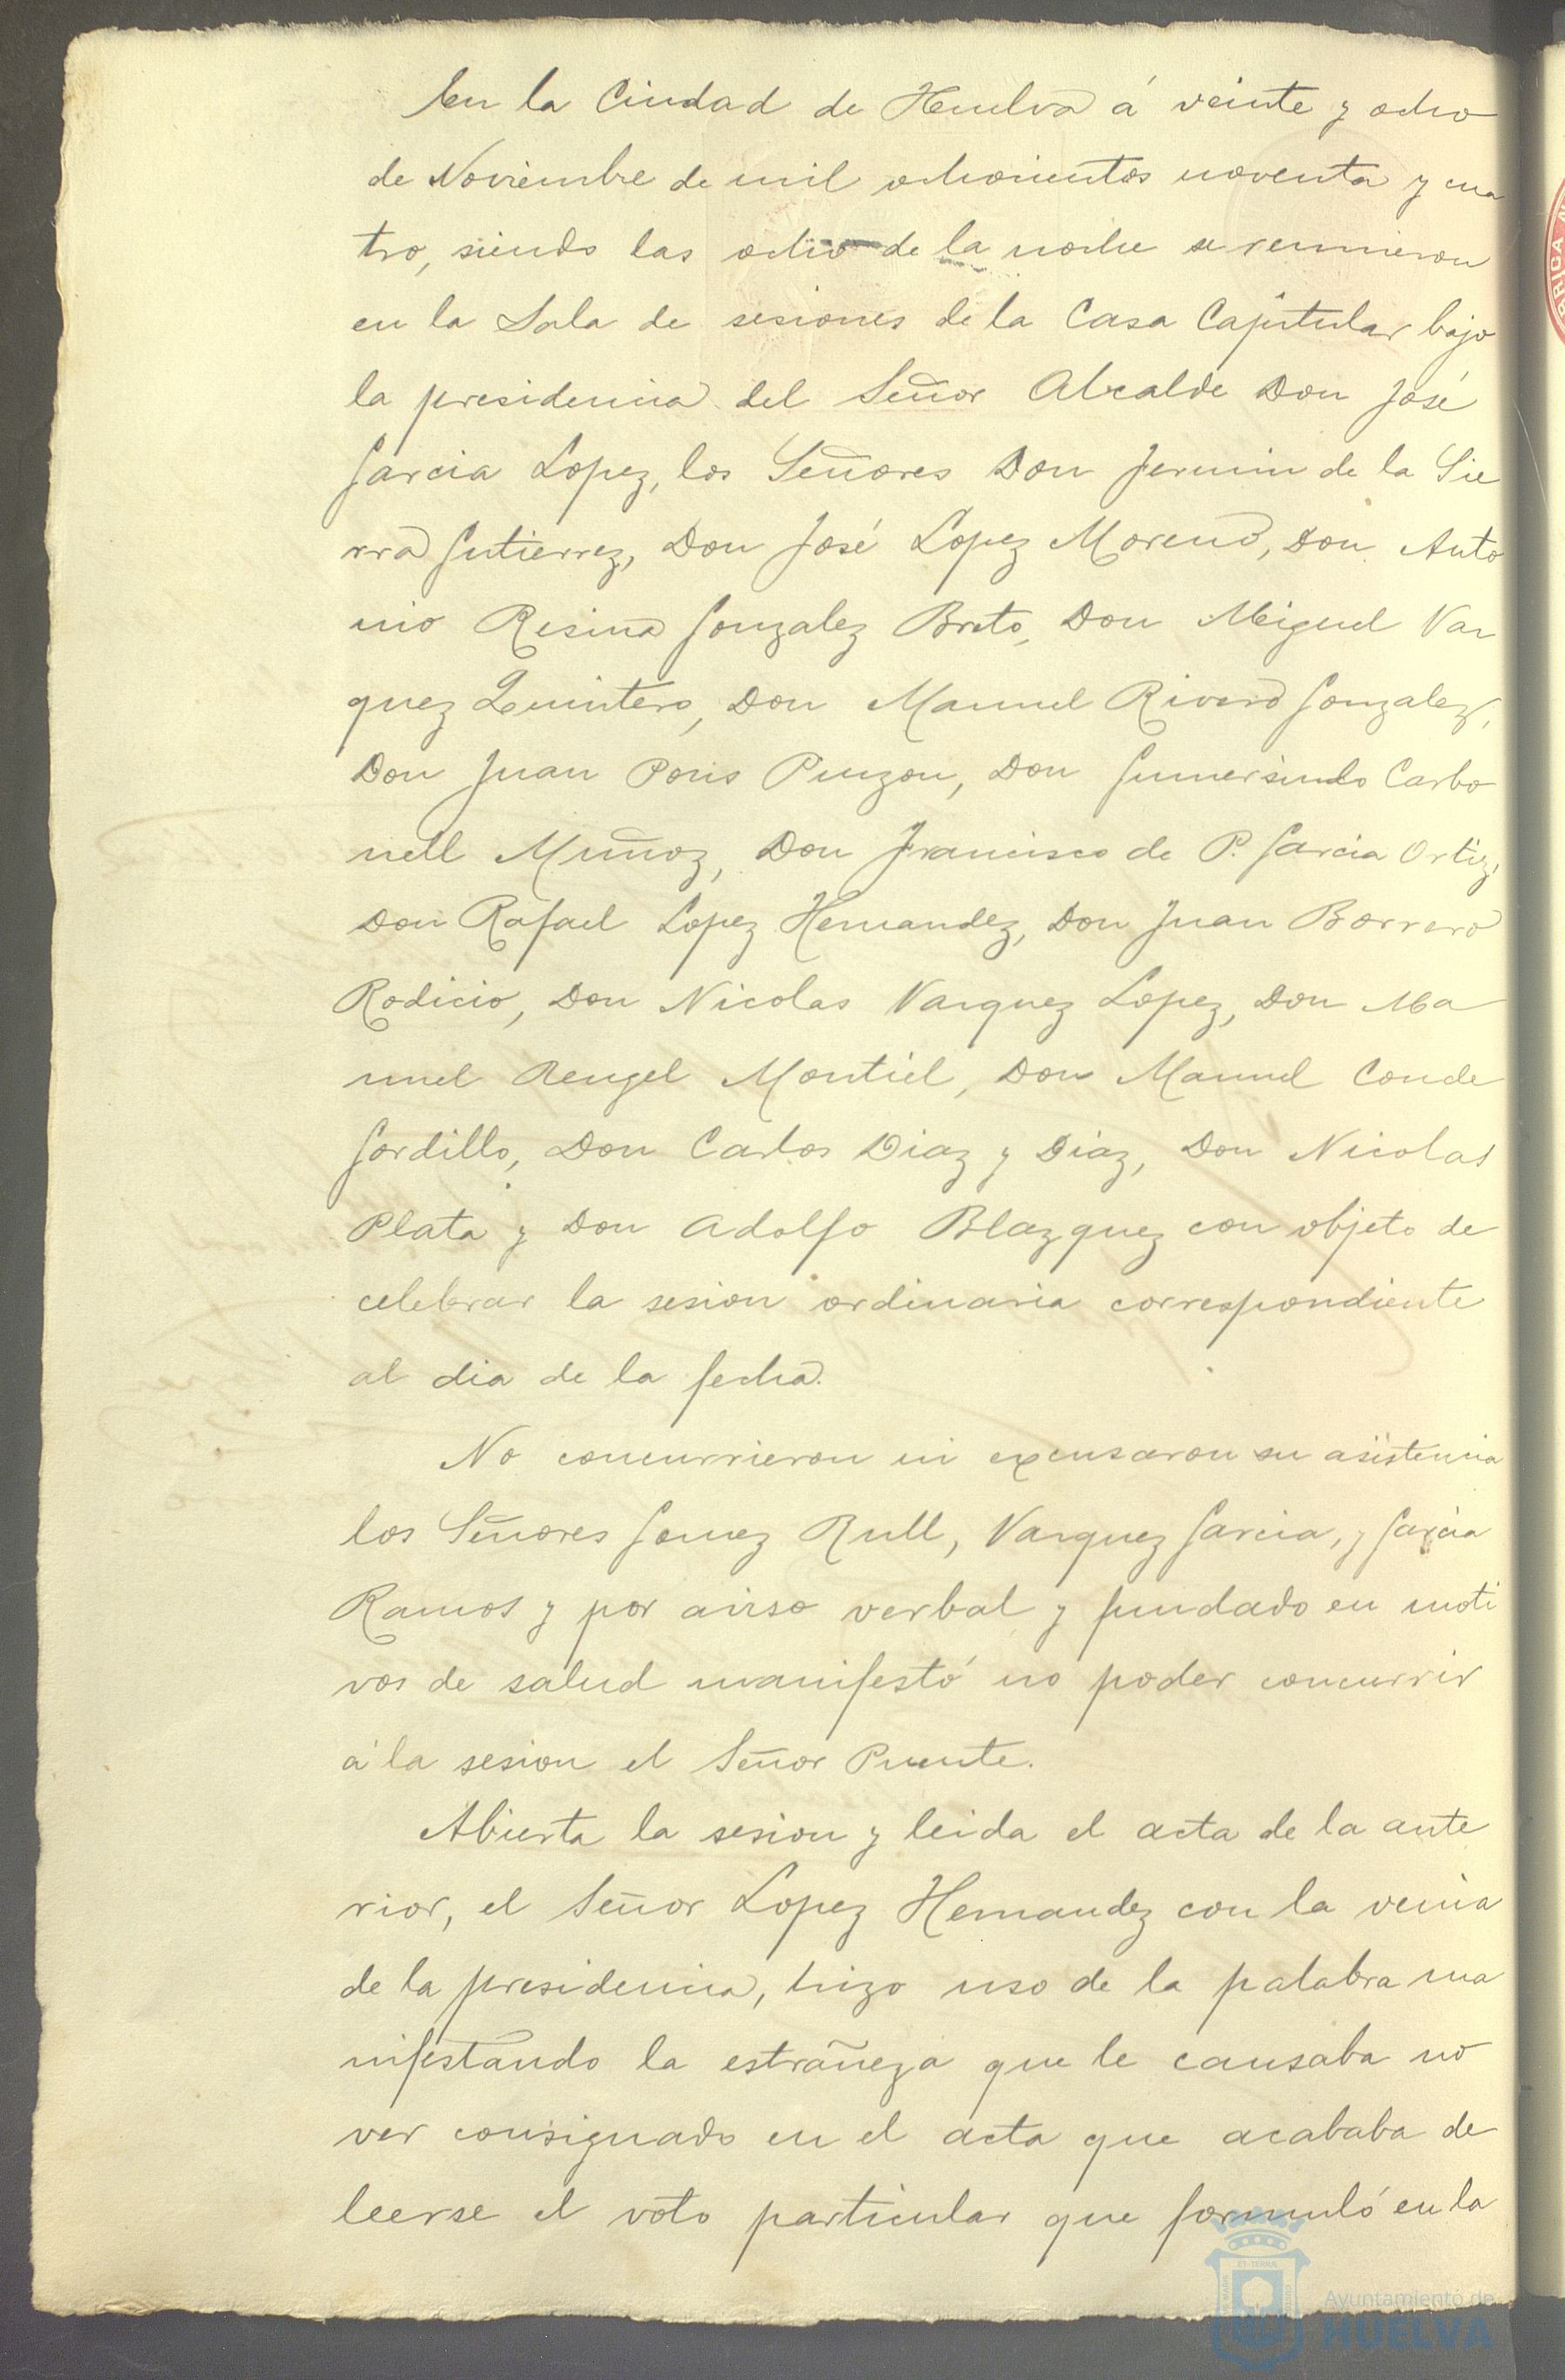 En la Ciudad de Huelva á veinte y ocho
de Noviembre de mil ochocientos noventa y cua
tro, siendo las ocho de la noche se reunieron
en la Sala de sesiones de la Casa Capitular bajo
la presidencia del Señor Alcalde Don José
Garcia Lopez, los Señores Don Fermin de la Sie
rra Gutierrez, Don José Lopez Moreno, Don Anto
nio Resina Gonzalez Brito, Don Miguel Vaz
quez Quintero, Don Manuel Rivero Gonzalez,
Don Juan Poris Pinzon, Don Gumersindo Carbo
nell Muñoz, Don Francisco de P. Garcia Ortiz,
Don Rafael Lopez Hernandez, Don Juan Borrero
Rodicio, Don Nicolas Vazquez Lopez, Don Ma
nuel Rengel Montiel, Don Manuel Conde
Gordillo, Don Carlos Diaz y Diaz, Don Nicolas
Plata y Don Adolfo Blazquez con objeto de
celebrar la sesion ordinaria correspondiente
al dia de la fecha.
No concurrieron ni excusaron su asistencia
los Señores Gomez Rull, Vazquez Garcia, y Garcia
Ramos y por aviso verbal y fundado en moti
vos de salud manifestó no poder concurrir
á la sesion el Señor Puente.
Abierta la sesion y leida el acta de la ante
rior, el Señor Lopez Hernandez con la venia
de la presidencia, hizo uso de la palabra ma
nifestando la estrañeza que le causaba no
ver consignado en el acta que acababa de
leerse el voto particular que formuló en la
Ayuntamiento de
HUELVA